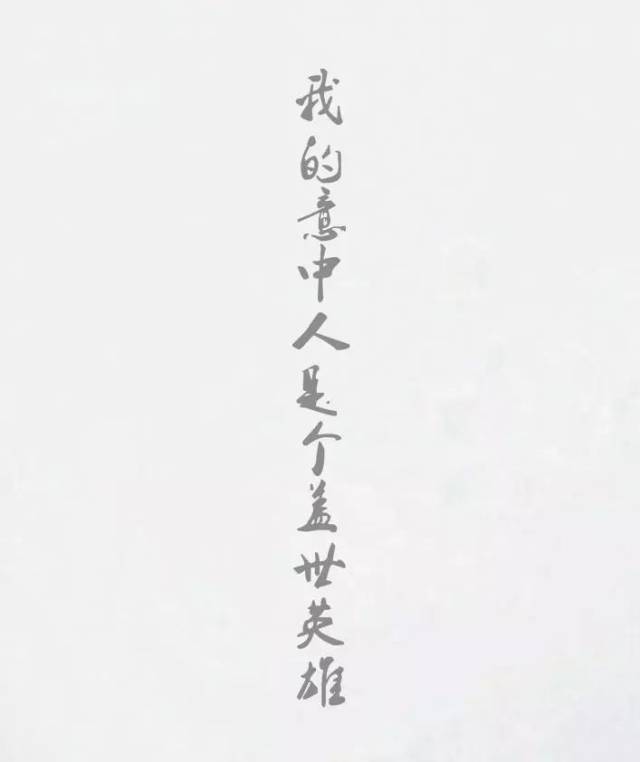 我的意中人是个盖世英雄